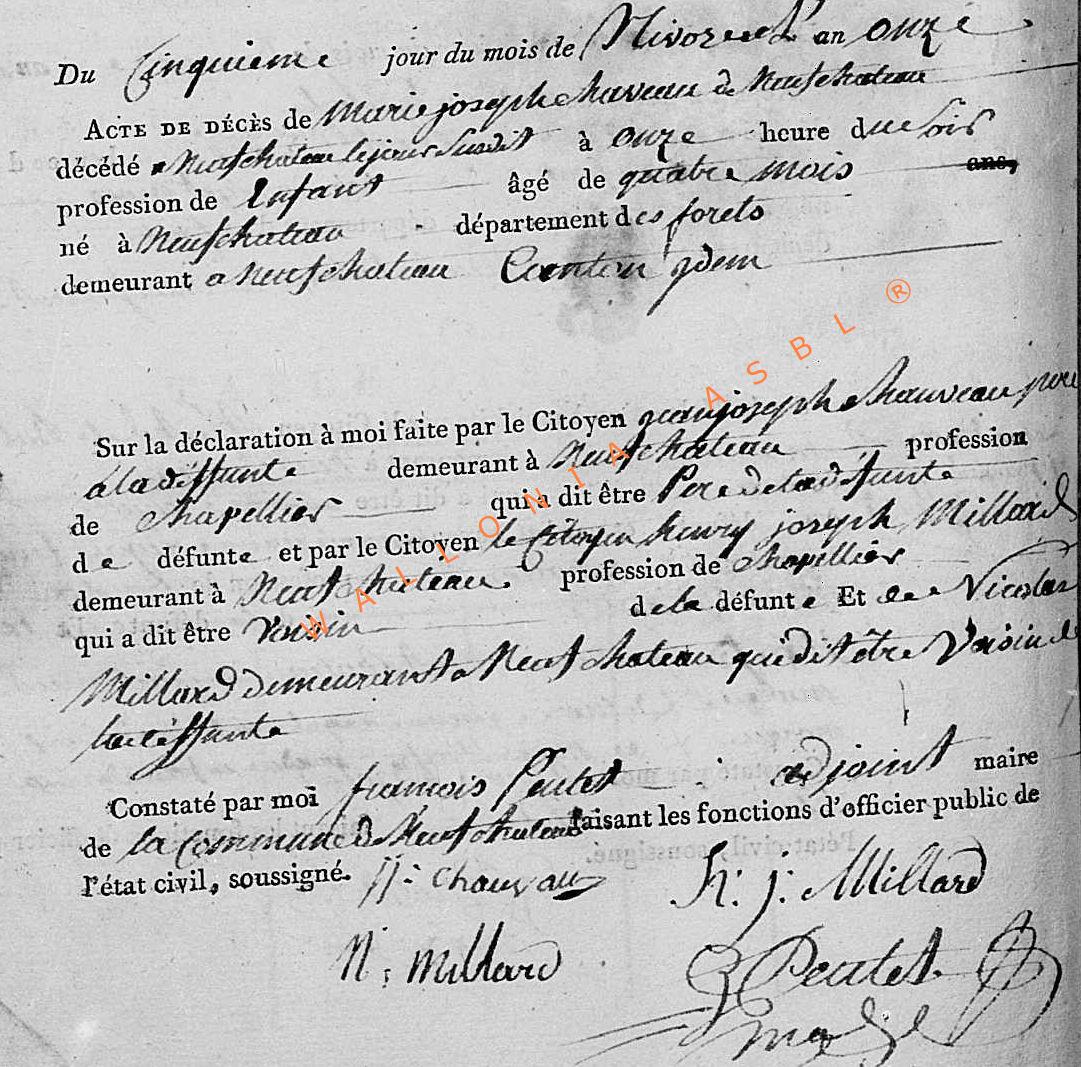 Du Cinquieme jour du mois de Nivose L' an onze
ACTE DE DÉCÈS de Marie joseph chauveau de Neufchateau
décédé a Neufchateau le jour Susdit à onze heure du Soir
profession de Enfant âgé de quatre mois ans,
né à Neufchateau département des forets
demeurant a Neufchateau Canton ydem
Sur la déclaration à moi faite par le Citoyen jean joseph chauveau pere
a la deffunte demeurant à Neufchateau profession
de Chapellier qui a dit être Pere de la deffunte
de défunte et par le Citoyen le Citoyen henry joseph Millard
demeurant à Neufchateau profession de Chapellier
qui a dit être Voisin de la défunte Et de Nicolas
Millard demeurant a Neufchateau qui dit être Voisin de
la deffunte
Constaté par moi françois Poulet adjoint maire
de la Commune de Neufchateau faisant les fonctions d'officier public de
l'état civil, soussigné. J J: chauvau h: j: Millard
N: millard Poulet
WALLONIA ASBL ®